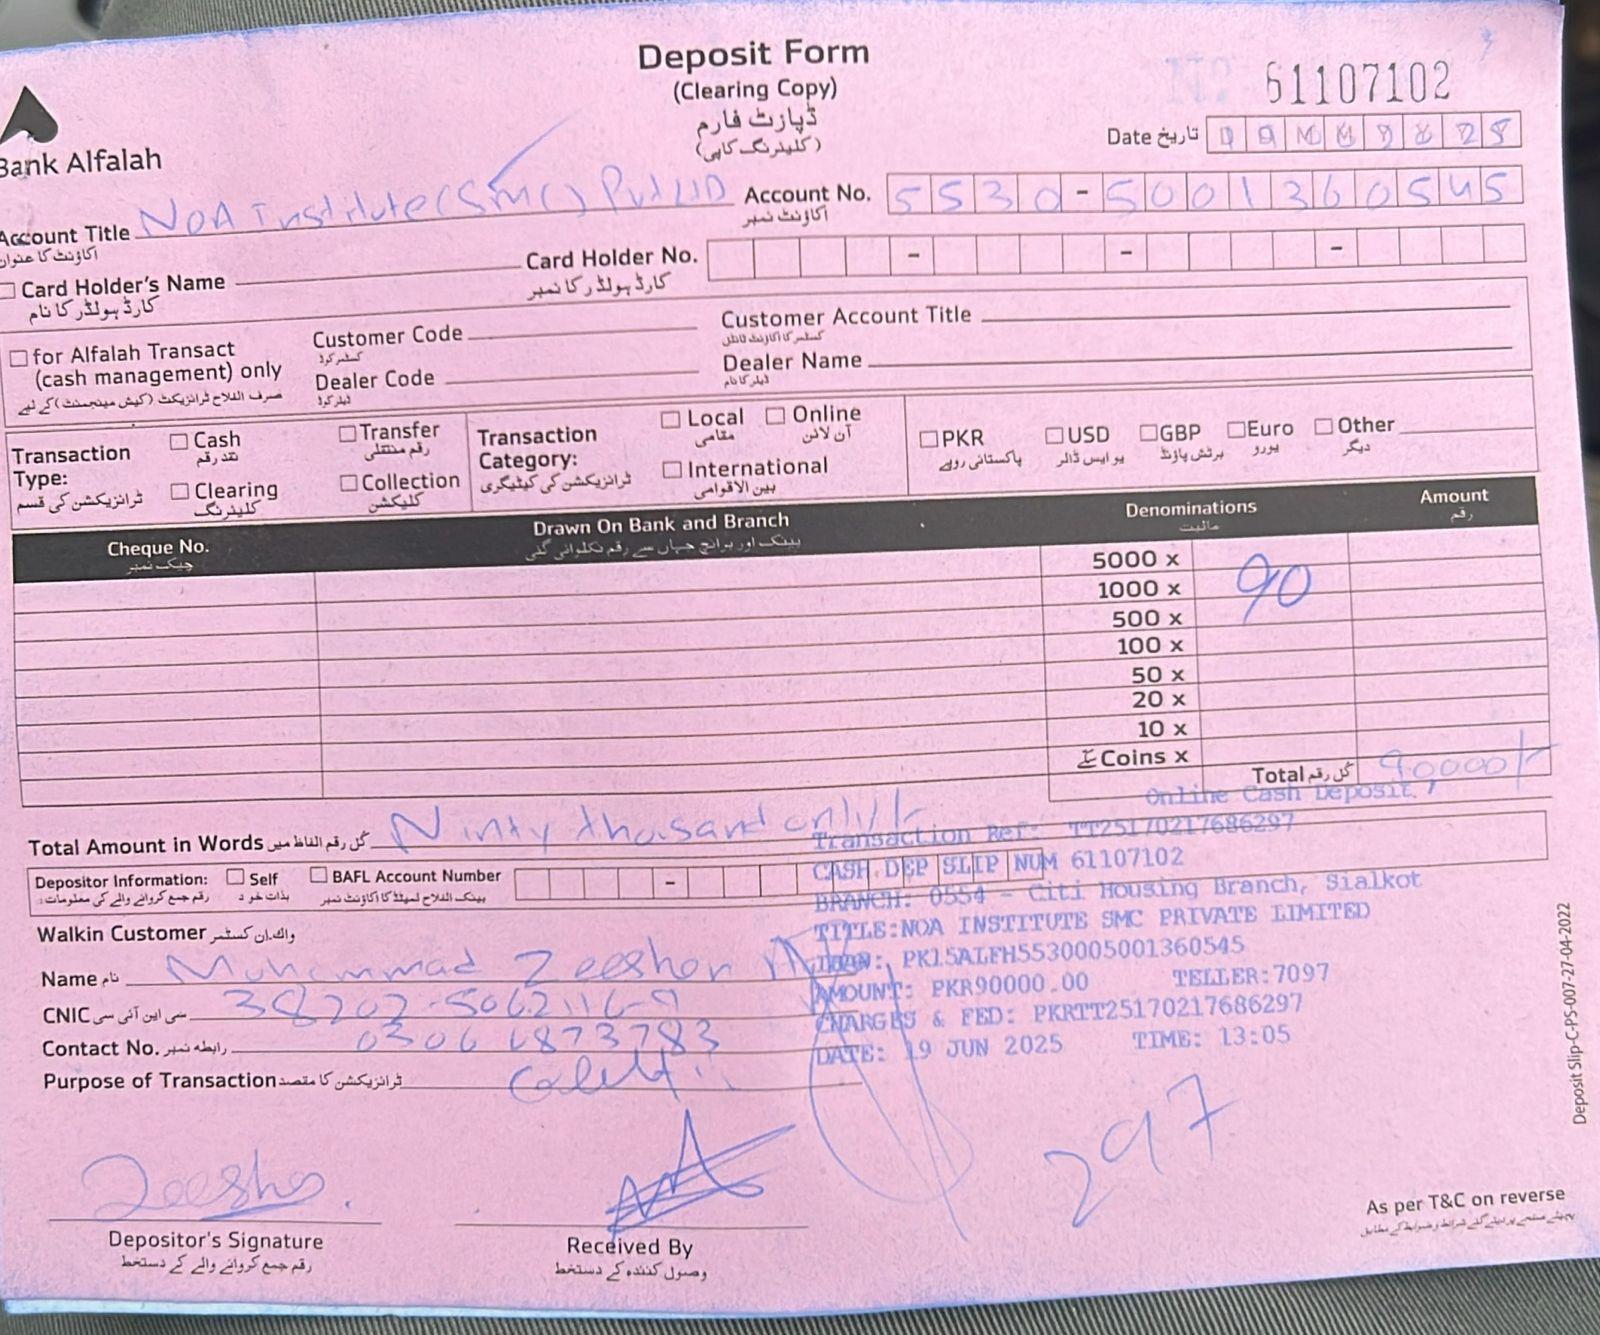 Deposit Form
(Clearing Copy)
ڈپازٹ فارم
(کلیئرنگ کاپی)
No: 61107102
Bank Alfalah
Date تاریخ
Account Title NOA Institute (SMC) Pvt LTD
اکاؤنٹ کا عنوان
Account No. 5530-5001360545
اکاؤنٹ نمبر
Card Holder's Name
کارڈ ہولڈر کا نام
Card Holder No.
کارڈ ہولڈر کا نمبر
for Alfalah Transact
(cash management) only
صرف الفلاح ٹرانزیکٹ (کیش مینجمنٹ) کے لیے
Customer Code
کسٹمر کوڈ
Customer Account Title
کسٹمر کا اکاؤنٹ ٹائٹل
Dealer Code
ڈیلر کوڈ
Dealer Name
ڈیلر کا نام
Transaction Type:
ٹرانزیکشن کی قسم
Cash
نقد رقم
Transfer
رقم منتقلی
Clearing
کلیئرنگ
Collection
کلیکشن
Transaction Category:
ٹرانزیکشن کی کیٹیگری
Local
مقامی
Online
آن لائن
International
بین الاقوامی
PKR
پاکستانی روپے
USD
یو ایس ڈالر
GBP
برٹش پاؤنڈ
Euro
یورو
Other
دیگر
Cheque No.
چیک نمبر
Drawn On Bank and Branch
بینک اور برانچ جہاں سے رقم نکلوائی گئی
Denominations
مالیت
Amount
رقم
5000 x
1000 x 90
500 x
100 x
50 x
20 x
10 x
Coins x
Total کُل رقم 90000/-
Total Amount in Words کُل رقم الفاظ میں Ninty thousand only/-
Depositor Information:
رقم جمع کروانے والے کی معلومات:
Self
بذات خود
BAFL Account Number
بینک الفلاح لمیٹڈ کا اکاؤنٹ نمبر
Walkin Customer واک ان کسٹمر
Name نام Muhammad Zeeshan
CNIC سی این آئی سی 38202-5062116-9
Contact No. رابطہ نمبر
Purpose of Transaction ٹرانزیکشن کا مقصد
Online Cash Deposit
Transaction Ref: TT25170217686297
CASH DEP SLIP NUM 61107102
BRANCH: 0554 - Citi Housing Branch, Sialkot
TITLE:NOA INSTITUTE SMC PRIVATE LIMITED
IBAN: PK15ALFH5530005001360545
AMOUNT: PKR90000.00 TELLER:7097
CHARGES & FED: PKRTT25170217686297
DATE: 19 JUN 2025 TIME: 13:05
297
Zeeshan
Depositor's Signature
رقم جمع کروانے والے کے دستخط
Received By
وصول کنندہ کے دستخط
As per T&C on reverse
Deposit Slip-C-PS-007-27-04-2022